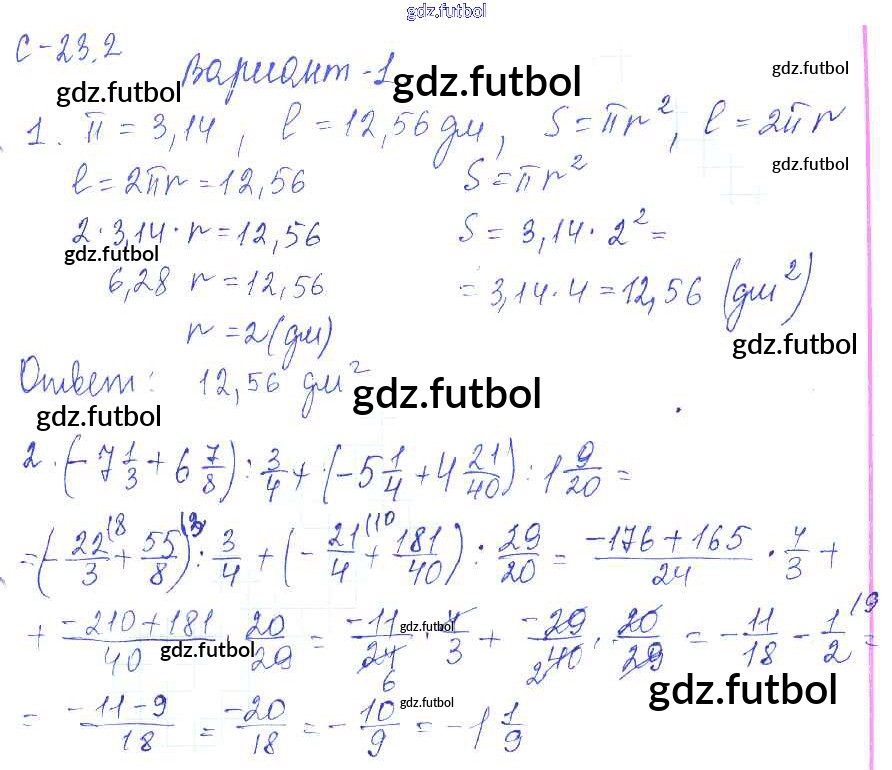 gdz.futbol
С-23.2
Вариант-1
gdz.futbol gdz.futbol gdz.futbol
1. π = 3,14, l = 12,56 дм, S = πr², l = 2πr
gdz.futbol
l = 2πr = 12,56 S = πr²
2·3,14·r = 12,56 S = 3,14·2² =
gdz.futbol
6,28 r = 12,56 = 3,14·4 = 12,56 (дм²)
r = 2 (дм)
gdz.futbol
Ответ: 12,56 дм²
gdz.futbol
gdz.futbol
2. (-7 1/3 + 6 7/8) : 3/4 + (-5 1/4 + 4 21/40) : 1 9/20 =
= (-22/3 (8 + 55/8 (3) : 3/4 + (-21/4 (10 + 181/40) : 29/20 = (-176+165)/24 · 4/3 +
+ (-210+181)/40 · 20/29 = -11/24 6 · 4/3 + -29/40 2 · 20/29 = -11/18 - 1/2 (9 =
gdz.futbol gdz.futbol gdz.futbol
= (-11-9)/18 = -20/18 = -10/9 = -1 1/9
gdz.futbol